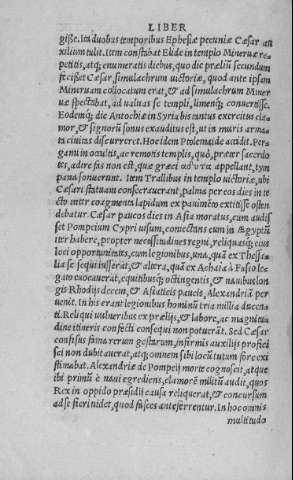 LIBER
gisse. Ita duobus temporibus Ephesiæ pecuniæ Cæsar au
xilium tulit. Item constabat Elide in templo Mineruæ re-
petitis, atq; enumeratis diebus, quo die prælium secundum
fecisset Cæsar, simulachrum uictoriæ, quod ante ipsam
Mineruam collocatum erat, & ad simulachrum Miner
uæ spectabat, ad ualuas se templi, limenq; conuertisse.
Eodemq; die Antochiæ in Syria bis tantus exercitus cla
mor, & signorū sonus exauditus est, ut in muris armata
ciuitas discurreret. Hoc idem Ptolemaide accidit. Per-
gami in occultis, ac remotis templis, quò, præter sacerdo
tes, adire fas non est, quæ græci ἄδυτα appellant, tym
pana sonuerunt. Item Trallibus in templo uictoriæ, ubi
Cæsari statuam consecrauerant, palma per eos dies in te
cto inter coagmenta lapidum ex pauimēto extitisse osten
debatur. Cæsar paucos dies in Asia moratus, cum audis
set Pompeium Cypri uisum, coniectans eum in Ægyptū
iter habere, propter necessitudines regni, reliquasq; eius
loci opportunitates, cum legionibus, una, quā ex Thessa-
lia se sequi iusserat, & altera, quā ex Achaia à Fusio le-
gato euocauerat, equitibusq; octingentis, & nauibus lon
gis Rhodijs decem, & Asiaticis paucis, Alexandriā per
uenit. In his erant legionibus hominū tria millia ducen-
ti. Reliqui uulneribus ex prælijs, & labore, ac magnitu
dine itineris confecti consequi non potuerāt. Sed Cæsar
confisus fama rerum gestarum, infirmis auxilijs profici
sci non dubitauerat, atq; omnem sibi locū tutum fore exi
stimabat. Alexandriæ de Pompeij morte cognoscit, atque
ibi primū è naui egrediens, clamorē militū audit, quos
Rex in oppido præsidij causa reliquerat, & concursum
ad se fieri uidet, quod fasces anteferrentur. In hoc omnis
multitudo